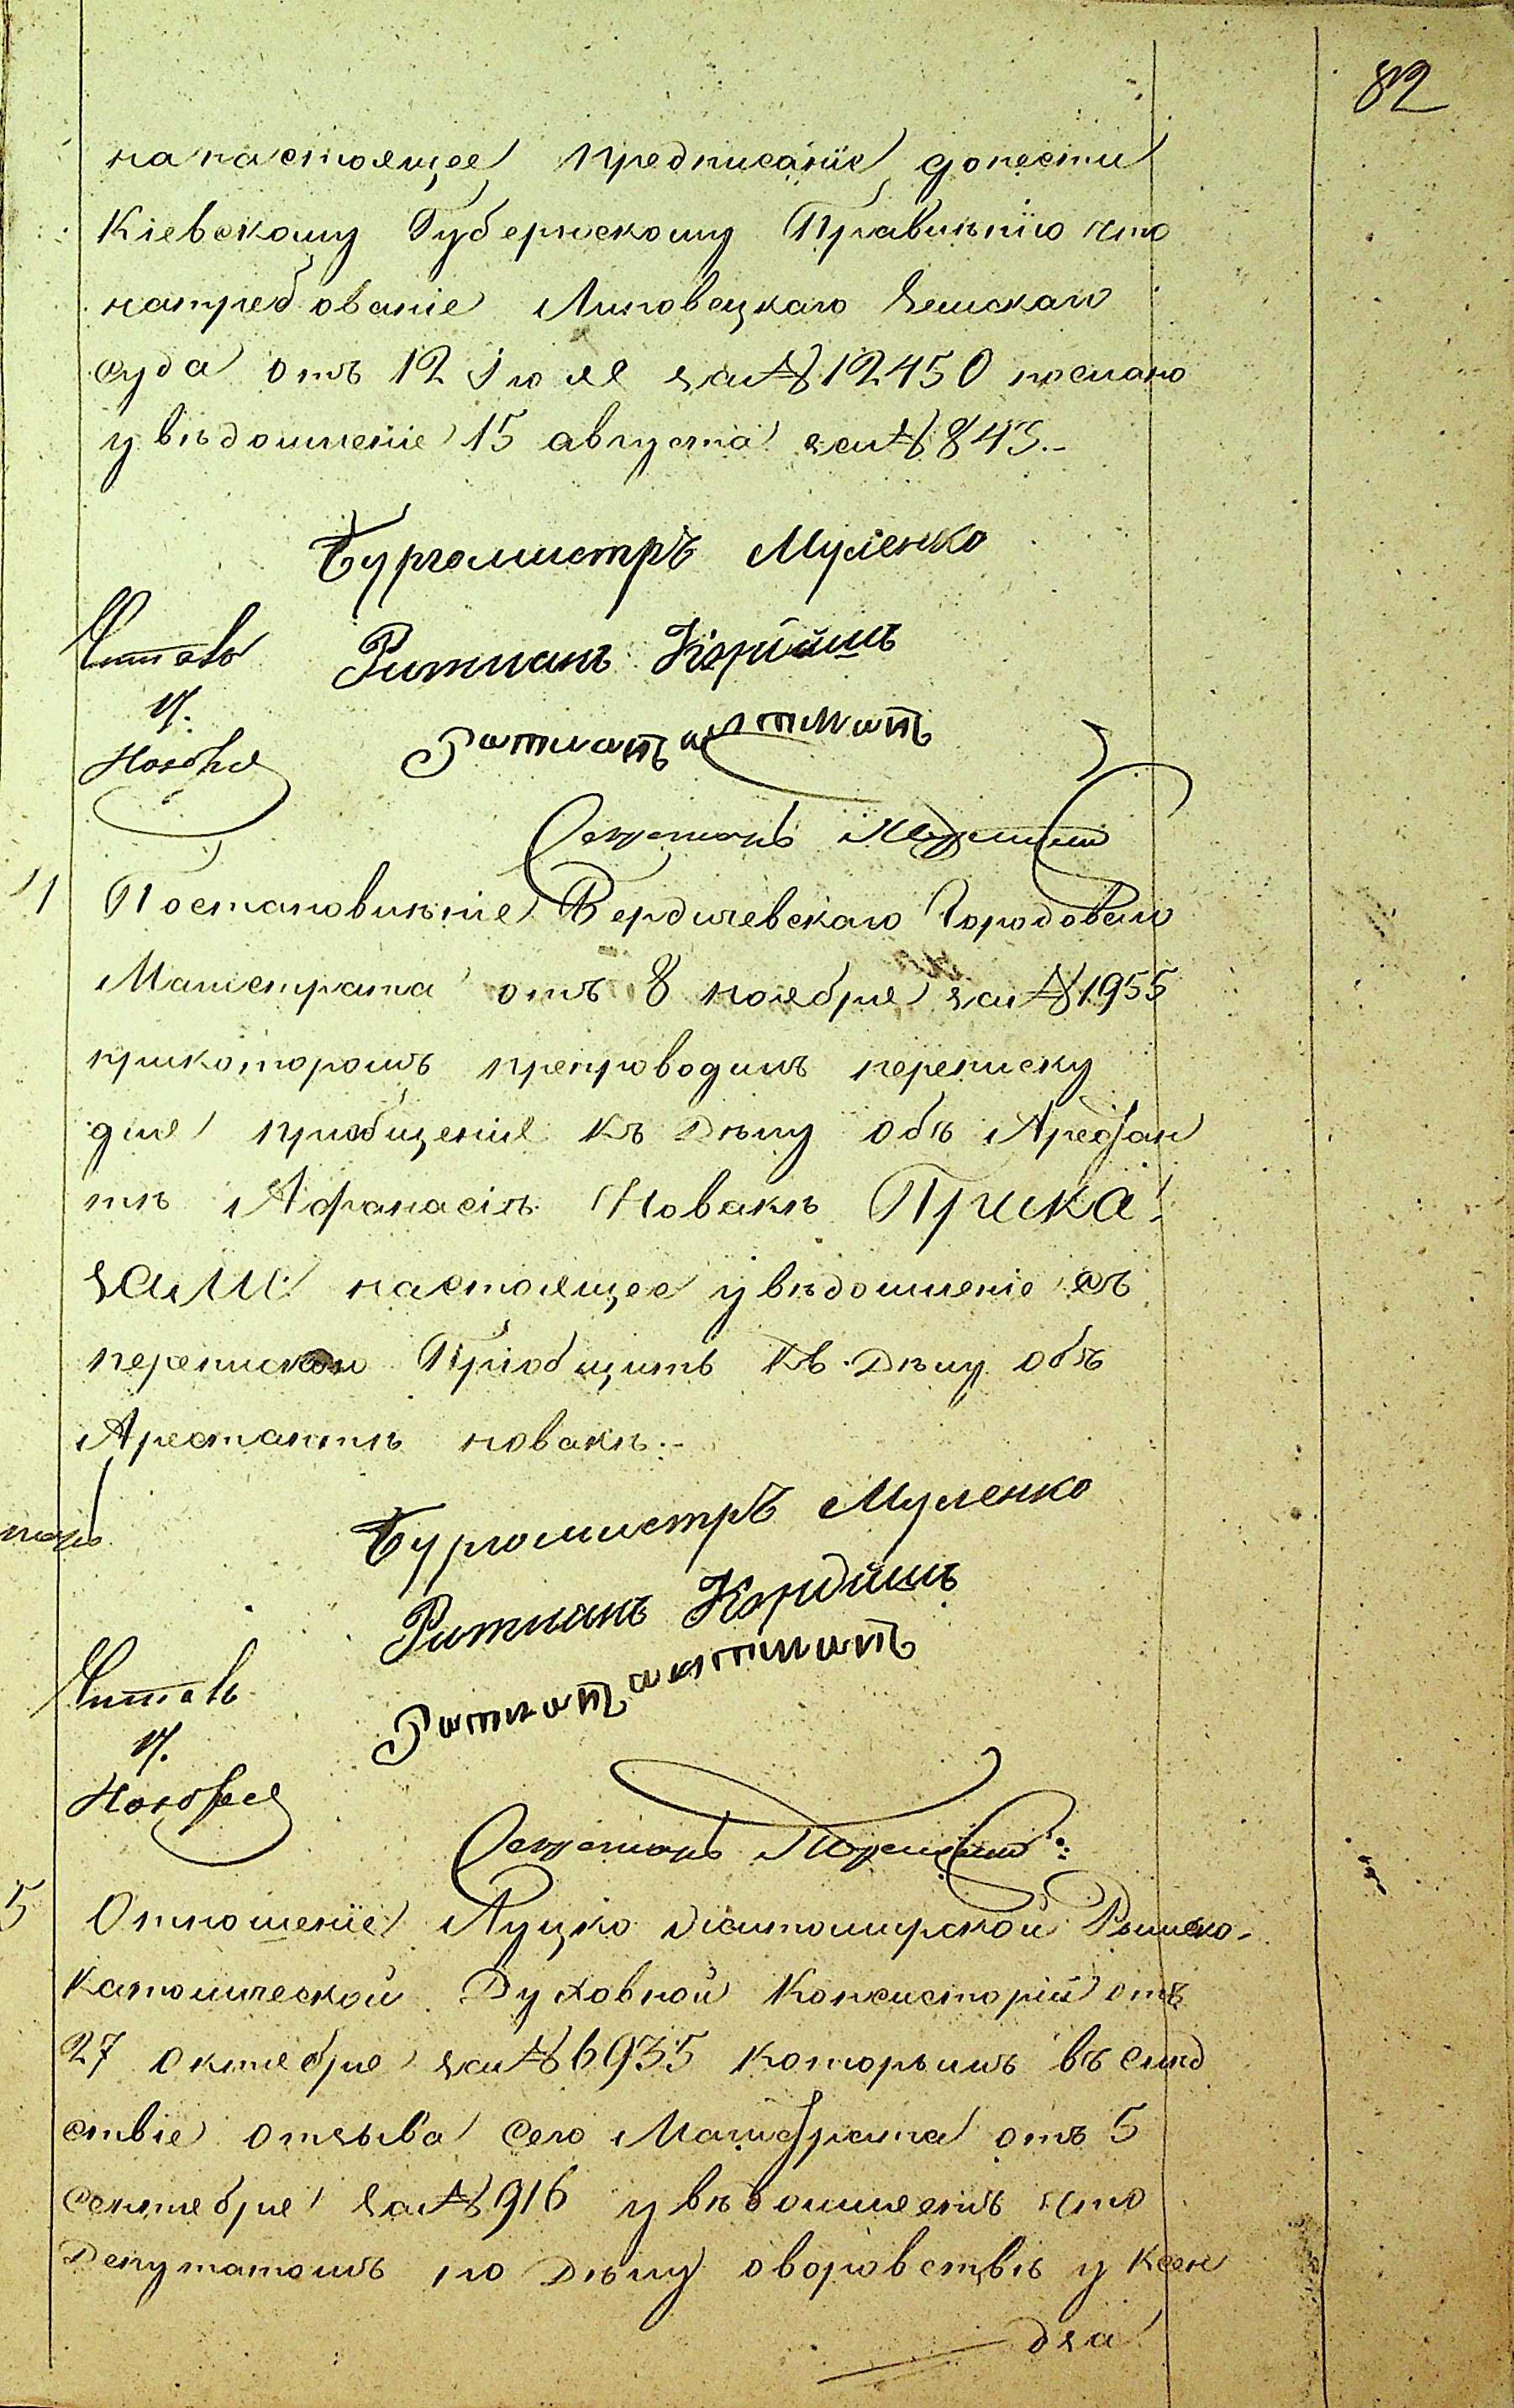 82
на настоящее предписаніе донести
Кіевскому Губернскому Правленію что
натребованіе Липовецкаго Земскаго
суда отъ 12 Іюля за № 12450 послано
увѣдомленіе 15 августа за № 843.-
Бургомистръ Муленко
Читалъ Ратманъ
17. Ратманъ
Ноября
Секретарь
11 Постановленіе Бердичевскаго Городоваго
Магистрата отъ 8 ноября за № 1955
прикоторомъ препроводилъ переписку
для пріобщенія къ дѣлу объ Арестан
тѣ Афанасіѣ Новакѣ Прика-
зали: настоящее увѣдомленіе съ
перепискою Пріобщить къ дѣлу объ
Арестантѣ новакѣ.-
Бургомистръ Муленко
Ратманъ
Читалъ Ратманъ
17.
Ноября
Секретарь
5 Отношеніе Луцко Житомирской Римско-
католической Духовной Консисторіи отъ
27 октября за № 6935 которымъ въ слѣд
ствіе отзыва сего Магистрата отъ 5
сентября за № 916 увѣдомляетъ что
Депутатомъ по дѣлу оворовствѣ у Ксен
дза